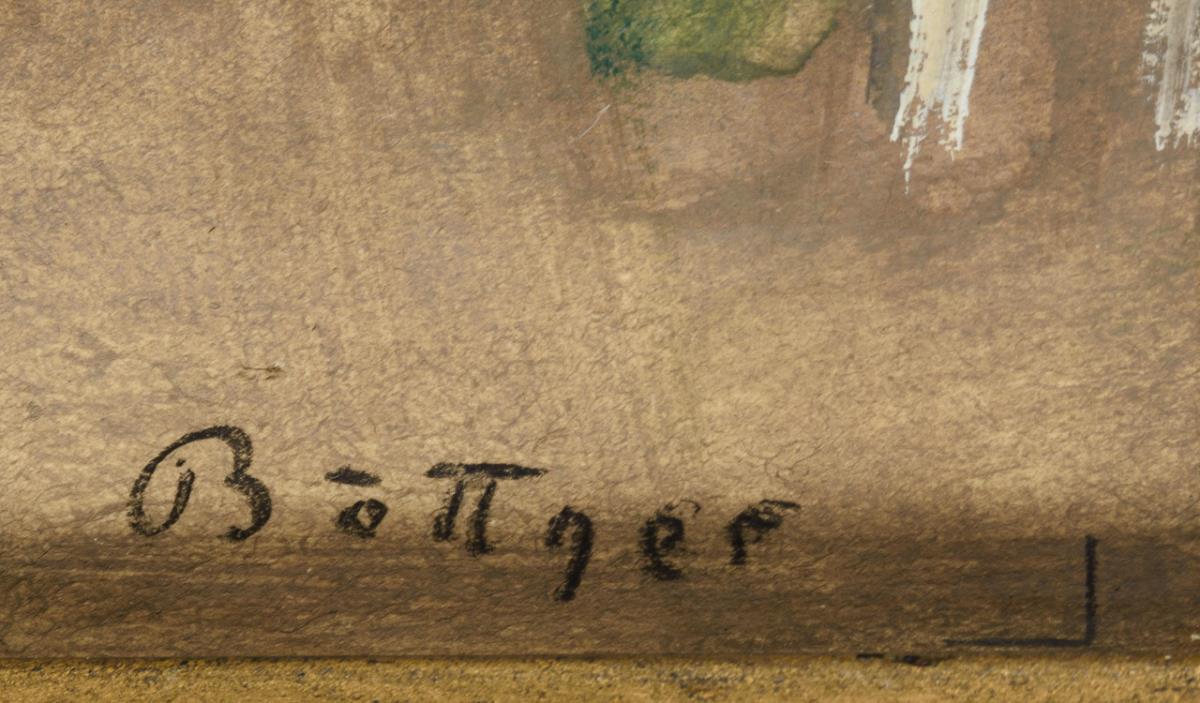 Böttger